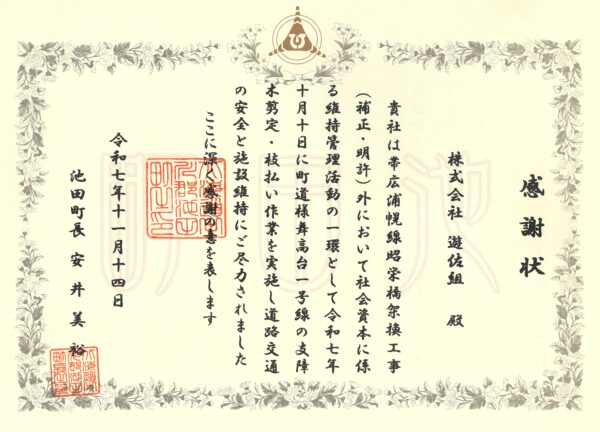 感謝状
株式会社 遊佐組 殿
貴社は帯広浦幌線昭栄橋架換工事
(補正・明許)外において社会資本に係
る維持管理活動の一環として令和七年
十月十日に町道様舞高台一号線の支障
木剪定・枝払い作業を実施し道路交通
の安全と施設維持にご尽力されました
ここに深く感謝の意を表します
令和七年十一月十四日
池田町長 安井美裕